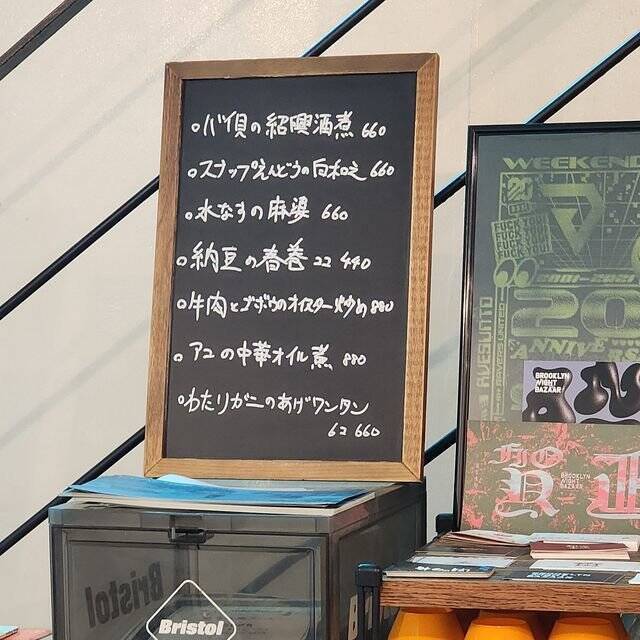 ○バイ貝の紹興酒煮 660
○スナップえんどうの白和え 660
○水なすの麻婆 660
○納豆の春巻 2コ 440
○牛肉とゴボウのオイスター炒め 880
○アユの中華オイル煮 880
○わたりガニのあげワンタン
6コ 660
WEEKEND
20
ANNIVE
BROOKLYN
NIGHT
BAZAAR
BROOKLYN
NIGHT
BAZAAR
Bristol
Bristol